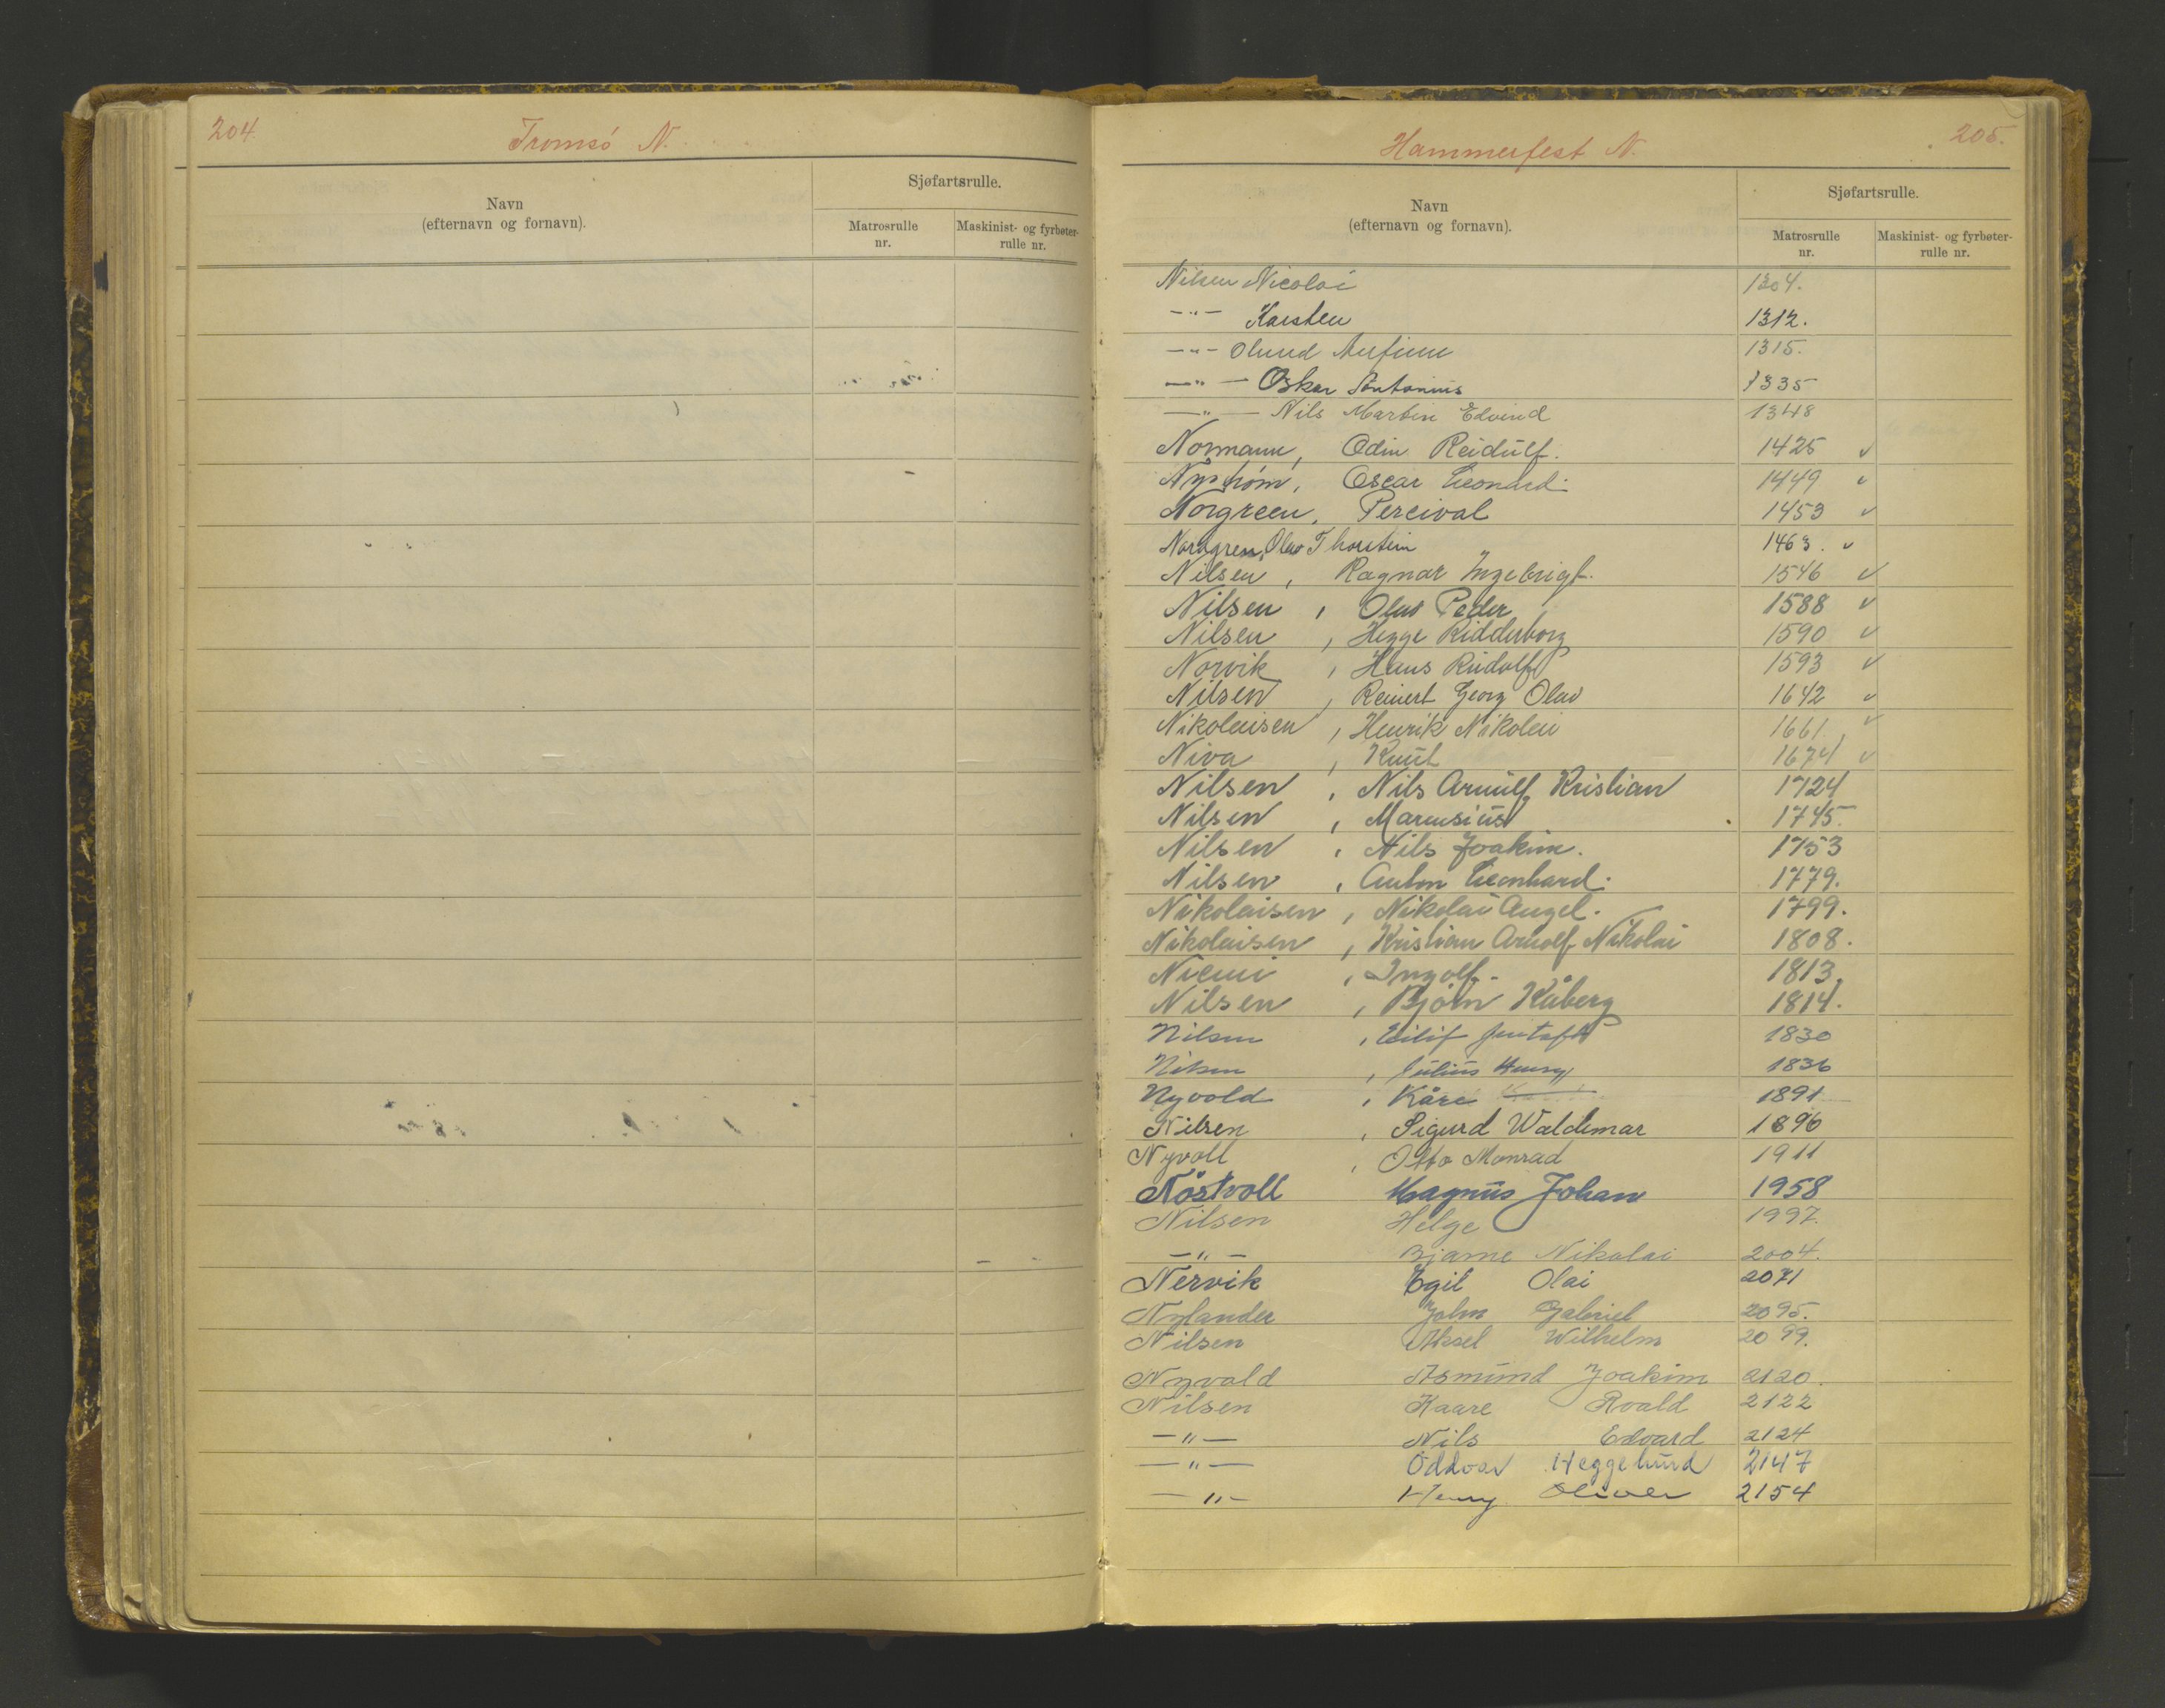 204
Tromsö N.
Navn
(efternavn og fornavn).
Sjøfartsrulle.
Matrosrulle
nr.
Maskinist- og fyrbøter-
rulle nr.
Hammerfest N.
205.
Navn
(efternavn og fornavn).
Sjøfartsrulle.
Matrosrulle
nr.
Maskinist- og fyrbøter-
rulle nr.
Nilsen Nicolai 1304.
—"— Karsten 1312.
—"— Olund Anfinn 1315.
—"— Oskar Antonius 1335
—"— Nils Martin Edvind 1348
Normann, Odin Reidulf. 1425 ✓
Nyström, Oscar Leonard. 1449 ✓
Norgreen, Percival 1453 ✓
Nordgren, Olav Thorstein 1463. ✓
Nilsen, Ragnar Ingebrigt. 1546 ✓
Nilsen, Olav Peder 1588 ✓
Nilsen, Hegge Ridderborg 1590 ✓
Norvik, Hans Rudolf 1593 ✓
Nilsen, Reinert Georg Olav 1642 ✓
Nikolaisen, Henrik Nikolai 1661 ✓
Niva, Knut 1674 ✓
Nilsen, Nils Arnulf Kristian 1724
Nilsen, Marensius 1745.
Nilsen, Nils Joakim. 1753
Nilsen, Anton Leonhard. 1779.
Nikolaisen, Nikolai Angel. 1799.
Nikolaisen, Kristian Arnolf Nikolai 1808.
Niemi, Ingolf. 1813.
Nilsen, Björn Kåberg 1814.
Nilsen, Eilif Gustaf 1830
Nilsen, Julius Henry 1836
Nyvold, Kåre 1891
Nilsen, Sigurd Waldemar 1896
Nyvoll, Otto Monrad 1911
Nöstvoll Magnus Johan 1958
Nilsen Helge 1997.
—"— Bjarne Nikolai 2004.
Nervik Egil Olai 2071
Nylander John Gabriel 2095.
Nilsen Aksel Wilhelm 2099.
Nyvold Asmund Joakim 2120.
Nilsen Kaare Roald 2122
—"— Nils Edvard 2124
—"— Oddvar Heggelund 2147
—"— Henry Oliver 2154